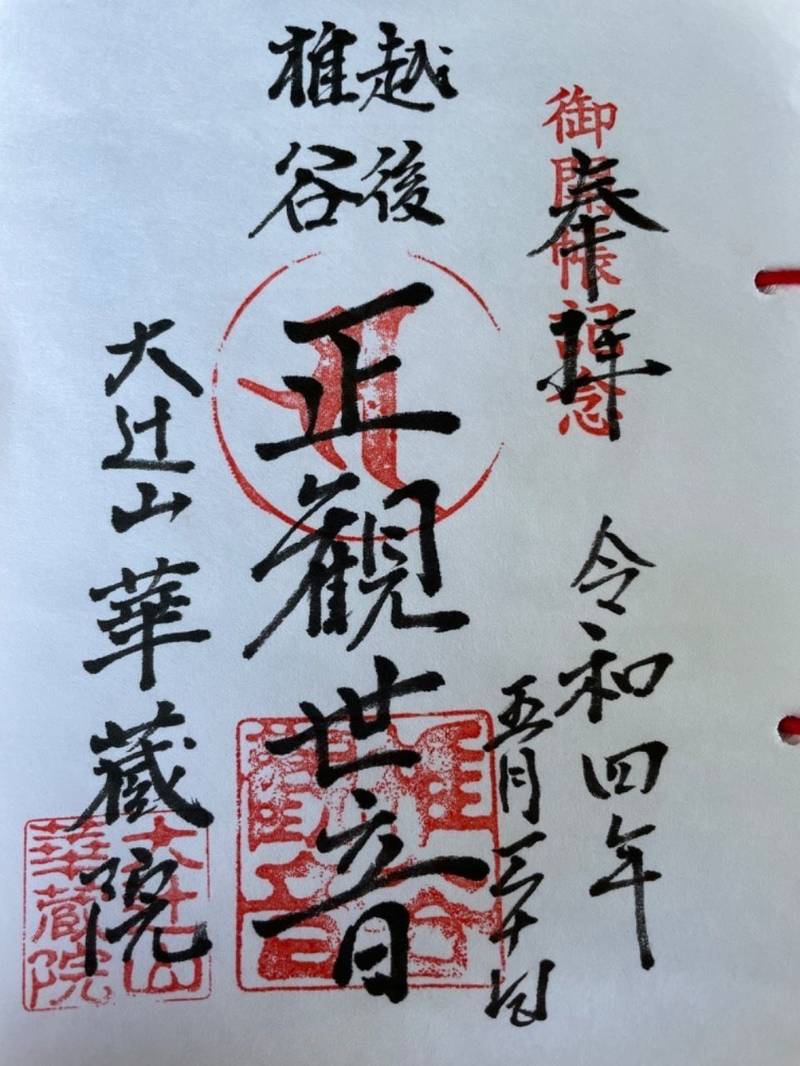 御開帳記念
奉拝
令和四年
五月三十
越後
椎谷
正観世音
大辻山華蔵院
大辻山
華蔵院